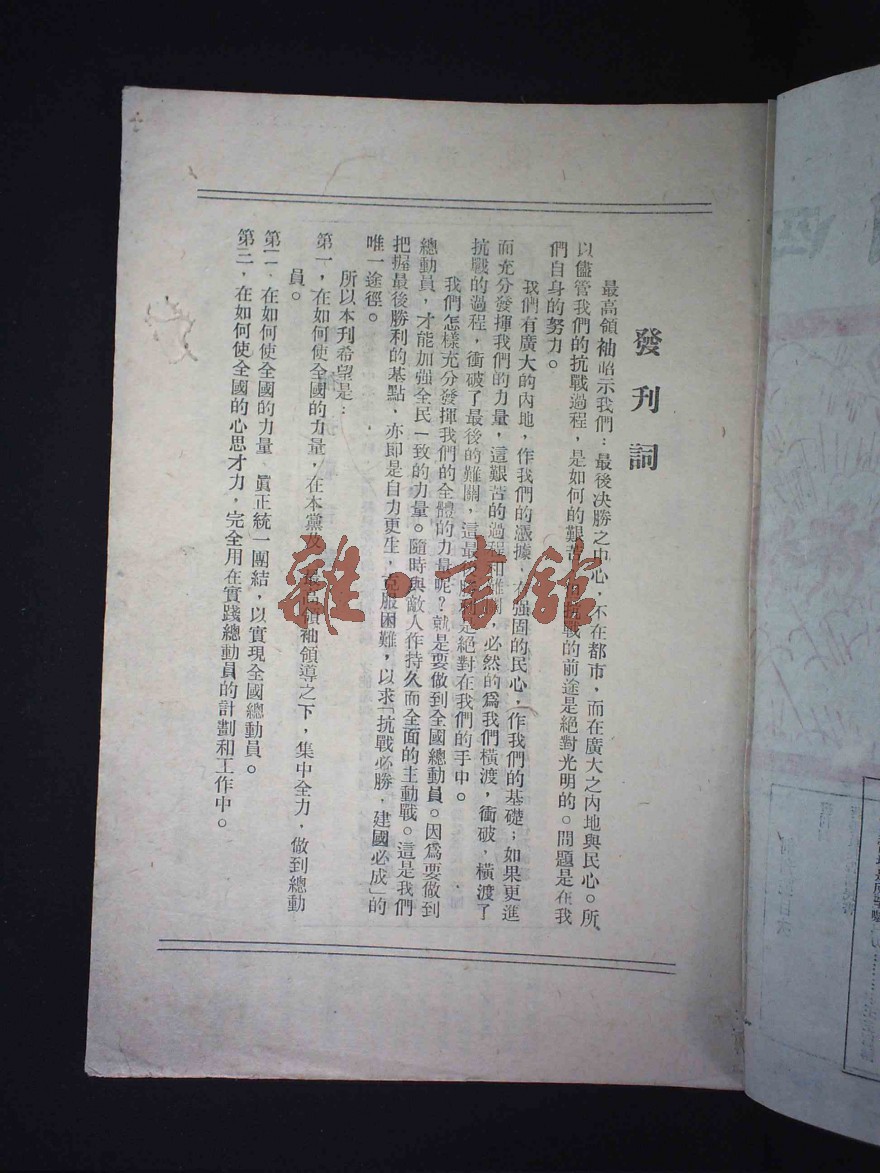 發刊詞
最高領袖昭示我們：最後決勝之中心，不在都市，而在廣大之內地與民心。所
以儘管我們的抗戰過程，是如何的艱苦，抗戰的前途是絕對光明的。問題是在我
們自身的努力。
我們有廣大的內地，作我們的憑據，強固的民心，作我們的基礎；如果更進
而充分發揮我們的力量，這艱苦的過程和難關，必然的爲我們橫渡，衝破，橫渡了
抗戰的過程，衝破了最後的難關，這最勝利是絕對在我們的手中。
我們怎樣充分發揮我們的全體的力量呢？就是要做到全國總動員。因爲要做到
總動員，才能加强全民一致的力量。隨時與敵人作持久而全面的主動戰。這是我們
把握最後勝利的基點，亦即是自力更生，克服困難，以求「抗戰必勝，建國必成」的
唯一途徑。
所以本刊希望是：
第一，在如何使全國的力量，在本黨及最高領袖領導之下，集中全力，做到總動
員。
第二，在如何使全國的力量、眞正統一團結，以實現全國總動員。
第三，在如何使全國的心思才力，完全用在實踐總動員的計劃和工作中。
雜·書館